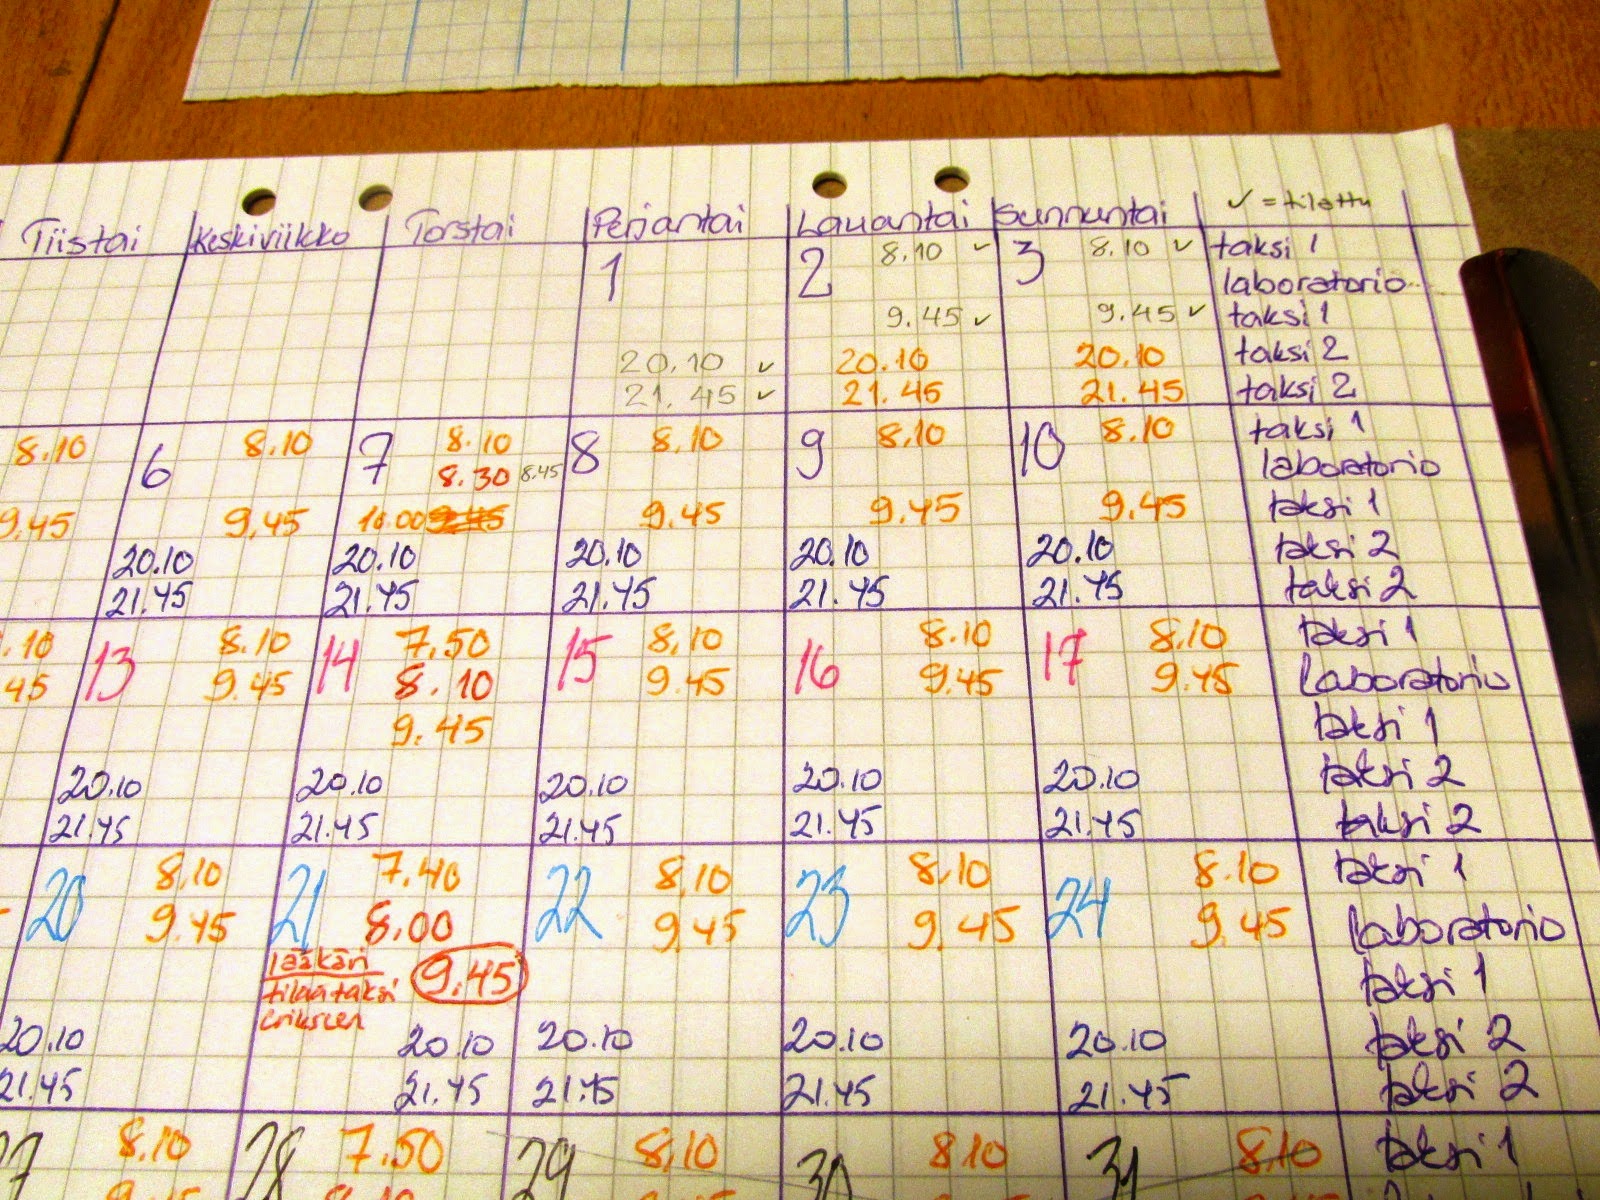 Tiistai Keskiviikko Torstai Perjantai Lauantai Sunnuntai ✓ = tilattu
1 2 8.10 ✓ 3 8.10 ✓ taksi 1
laboratorio
9.45 ✓ 9.45 ✓ taksi 1
20.10 ✓ 20.10 20.10 taksi 2
21.45 ✓ 21.45 21.45 taksi 2
8.10 6 8.10 7 8.10 8 8.10 9 8.10 10 8.10 taksi 1
8.30 8.45 laboratorio
9.45 9.45 10.00 9.45 9.45 9.45 9.45 taksi 1
20.10 20.10 20.10 20.10 20.10 taksi 2
21.45 21.45 21.45 21.45 21.45 taksi 2
.10 13 8.10 14 7.50 15 8.10 16 8.10 17 8.10 taksi 1
45 9.45 8.10 9.45 9.45 9.45 laboratorio
9.45 taksi 1
20.10 20.10 20.10 20.10 20.10 taksi 2
21.45 21.45 21.45 21.45 21.45 taksi 2
20 8.10 21 7.40 22 8.10 23 8.10 24 8.10 taksi 1
9.45 8.00 9.45 9.45 9.45 laboratorio
lääkäri
tilaa taksi 9.45 taksi 1
erikseen
20.10 20.10 20.10 20.10 20.10 taksi 2
21.45 21.45 21.45 21.45 21.45 taksi 2
27 8.10 28 7.50 29 8.10 30 8.10 31 8.10 taksi 1